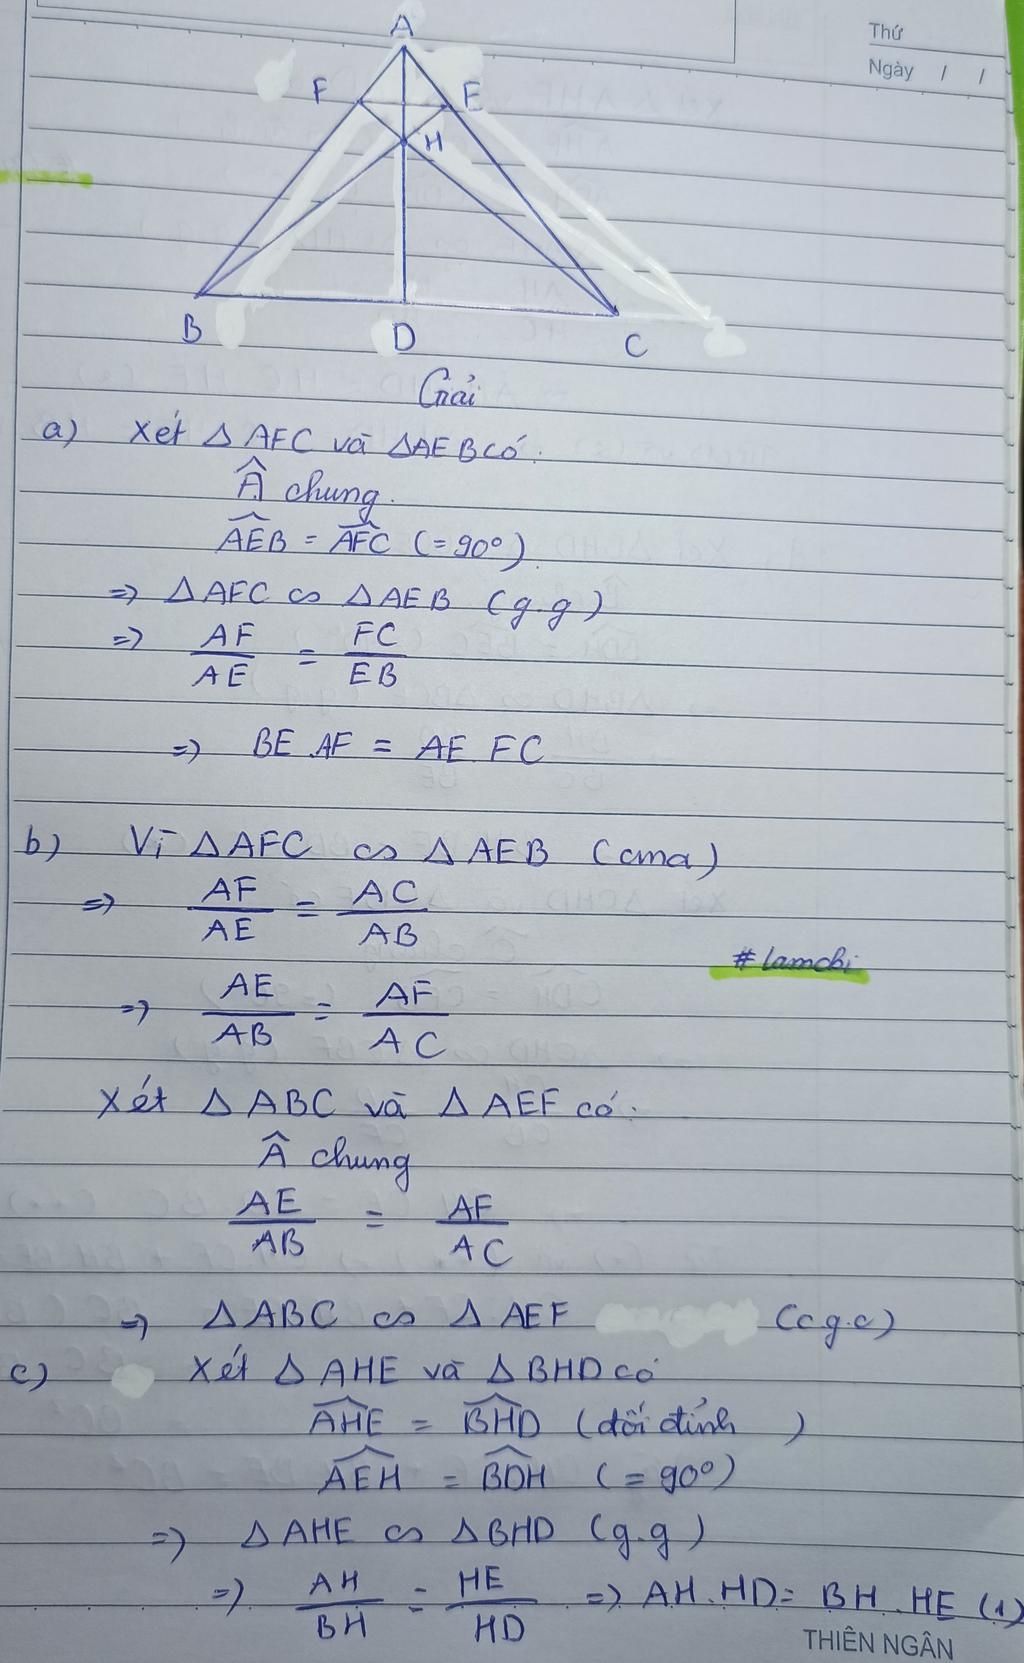 Thứ
Ngày / /
A
F E
H
B D C
Giải
a) Xét Δ AFC và ΔAEB có.
Â chung.
$\widehat{AEB}$ = $\widehat{AFC}$ (=90°)
=> Δ AFC ∽ Δ AEB (g.g)
=> $\frac{AF}{AE}$ = $\frac{FC}{EB}$
=> BE . AF = AE . FC
b) Vì Δ AFC ∽ Δ AEB (cma)
=> $\frac{AF}{AE}$ = $\frac{AC}{AB}$
# lamchi
=> $\frac{AE}{AB}$ = $\frac{AF}{AC}$
Xét Δ ABC và Δ AEF có.
Â chung
$\frac{AE}{AB}$ = $\frac{AF}{AC}$
=> Δ ABC ∽ Δ AEF (c g.c)
c) Xét Δ AHE và Δ BHD có
$\widehat{AHE}$ = $\widehat{BHD}$ (đối đỉnh)
$\widehat{AEH}$ = $\widehat{BDH}$ (= 90°)
=> Δ AHE ∽ Δ BHD (g.g)
=> $\frac{AH}{BH}$ = $\frac{HE}{HD}$ => AH . HD = BH . HE (1)
THIÊN NGÂN